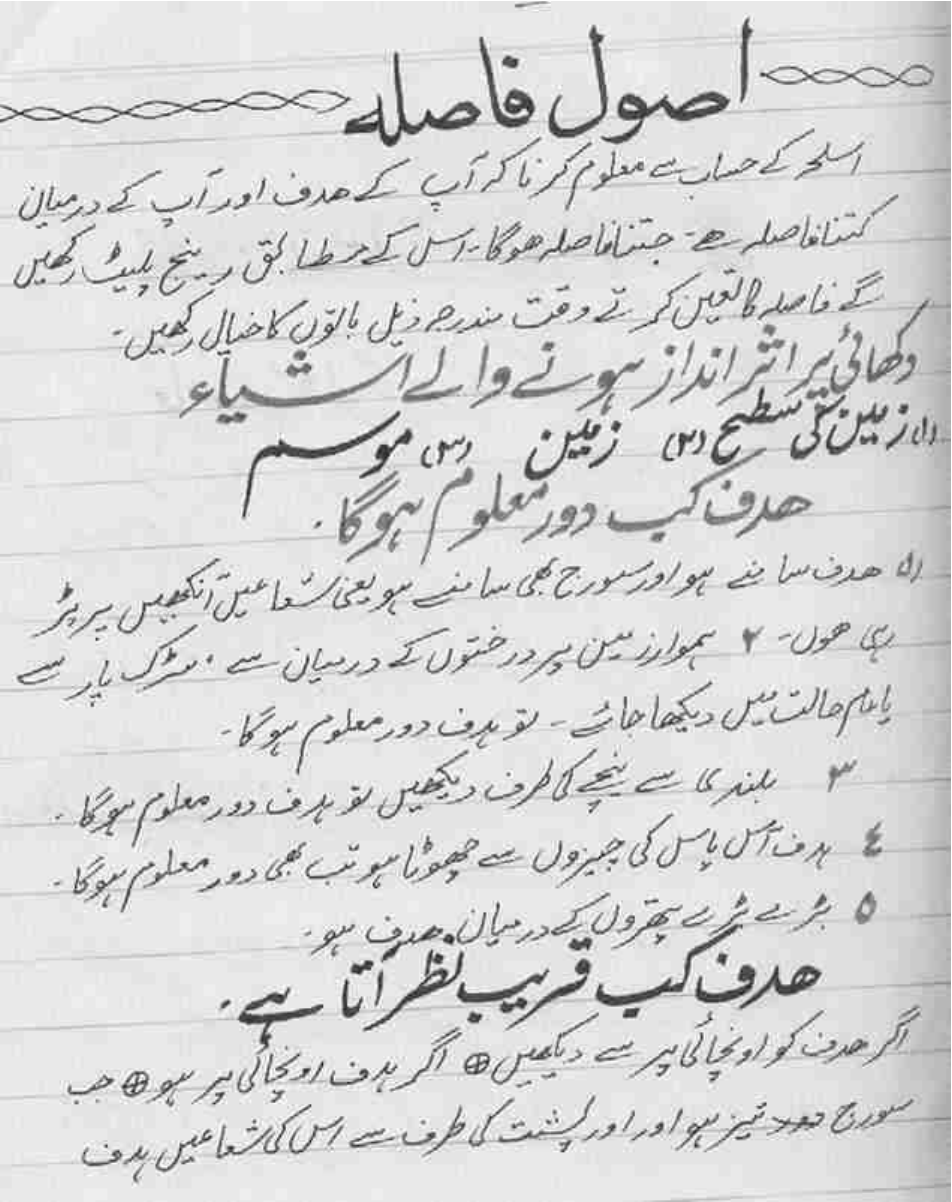 اصول فاصلہ
اسلحہ کے حساب سے معلوم کرنا کہ آپ کے ھدف اور آپ کے درمیان
کتنا فاصلہ ھے۔ جتنا فاصلہ ھوگا۔ اس کے مطابق رینج پلیٹ رکھیں
گے فاصلہ کا تعین کرتے وقت مندرجہ ذیل باتوں کا خیال رکھیں۔
دکھائی پر اثر انداز ہونے والے اشیاء
(۱) زمین کی سطح (۲) زمین (۳) موسم
ھدف کب دور معلوم ہوگا۔
(۱) ھدف سامنے ہو اور سورج بھی سامنے ہو یعنی شعاعیں آنکھیں پر پڑ
رہی ھوں۔ ۲ ہموار زمین پر درختوں کے درمیان سے۔ سڑک پار سے
یا عام حالت میں دیکھا جائے۔ تو ہدف دور معلوم ہوگا۔
۳ بلندی سے نیچے کی طرف دیکھیں تو ہدف دور معلوم ہوگا۔
٤ ہدف آس پاس کی چیزوں سے چھوٹا ہو تب بھی دور معلوم ہوگا۔
۵ بڑے بڑے پتھروں کے درمیان ھدف ہو۔
ھدف کب قریب نظر آتا ہے۔
اگر ھدف کو اونچائی پر سے دیکھیں ⊕ اگر ہدف اونچائی پر ہو ⊕ جب
سورج تیز ہو اور اور پشت کی طرف سے اس کی شعاعیں ہدف